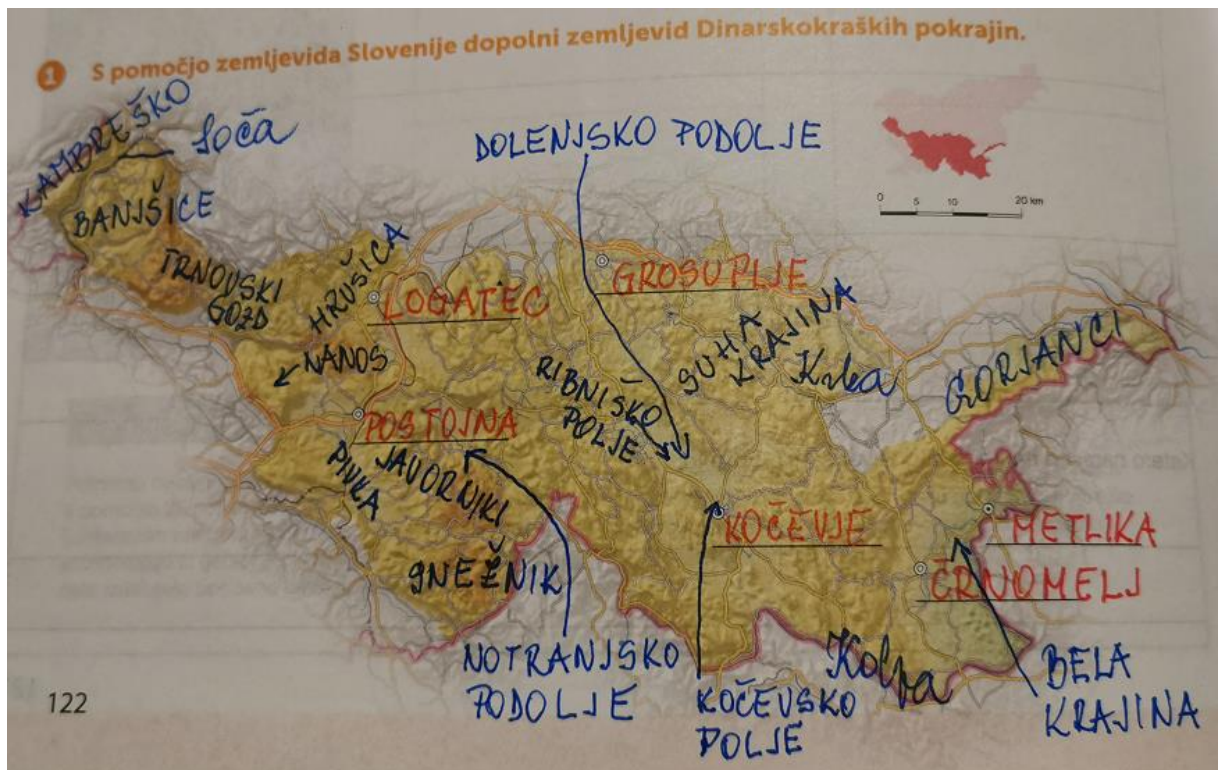 1 S pomočjo zemljevida Slovenije dopolni zemljevid Dinarskokraških pokrajin.
KAMBREŠKO
Soča
BANJŠICE
TRNOVSKI
GOZD
HRUŠICA
NANOS
LOGATEC
DOLENJSKO PODOLJE
GROSUPLJE
0 5 10 20 km
SUHA
KRAJINA
Krka
GORJANCI
RIBNIŠKO
POLJE
POSTOJNA
PIVKA
JAVORNIKI
SNEŽNIK
KOČEVJE
METLIKA
ČRNOMELJ
NOTRANJSKO
PODOLJE
KOČEVSKO
POLJE
Kolpa
BELA
KRAJINA
122